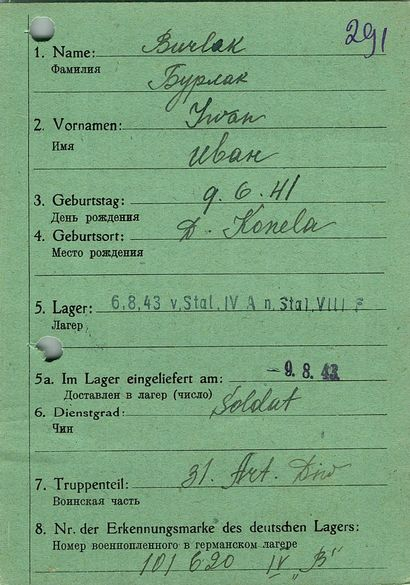 291
1. Name: Burlak
Фамилия Бурлак
2. Vornamen: Iwan
Имя Иван
3. Geburtstag: 9. 6. 41
День рождения
4. Geburtsort: D. Konela
Место рождения
5. Lager: 6.8.43 v. Stal. IV A n. Stal. VIII F
Лагерь
5a. Im Lager eingeliefert am: - 9. 8. 43
Доставлен в лагерь (число)
6. Dienstgrad: Soldat
Чин
7. Truppenteil: 31. Art. Div
Воинская часть
8. Nr. der Erkennungsmarke des deutschen Lagers:
Номер военнопленного в германском лагере
101620 IV "B"